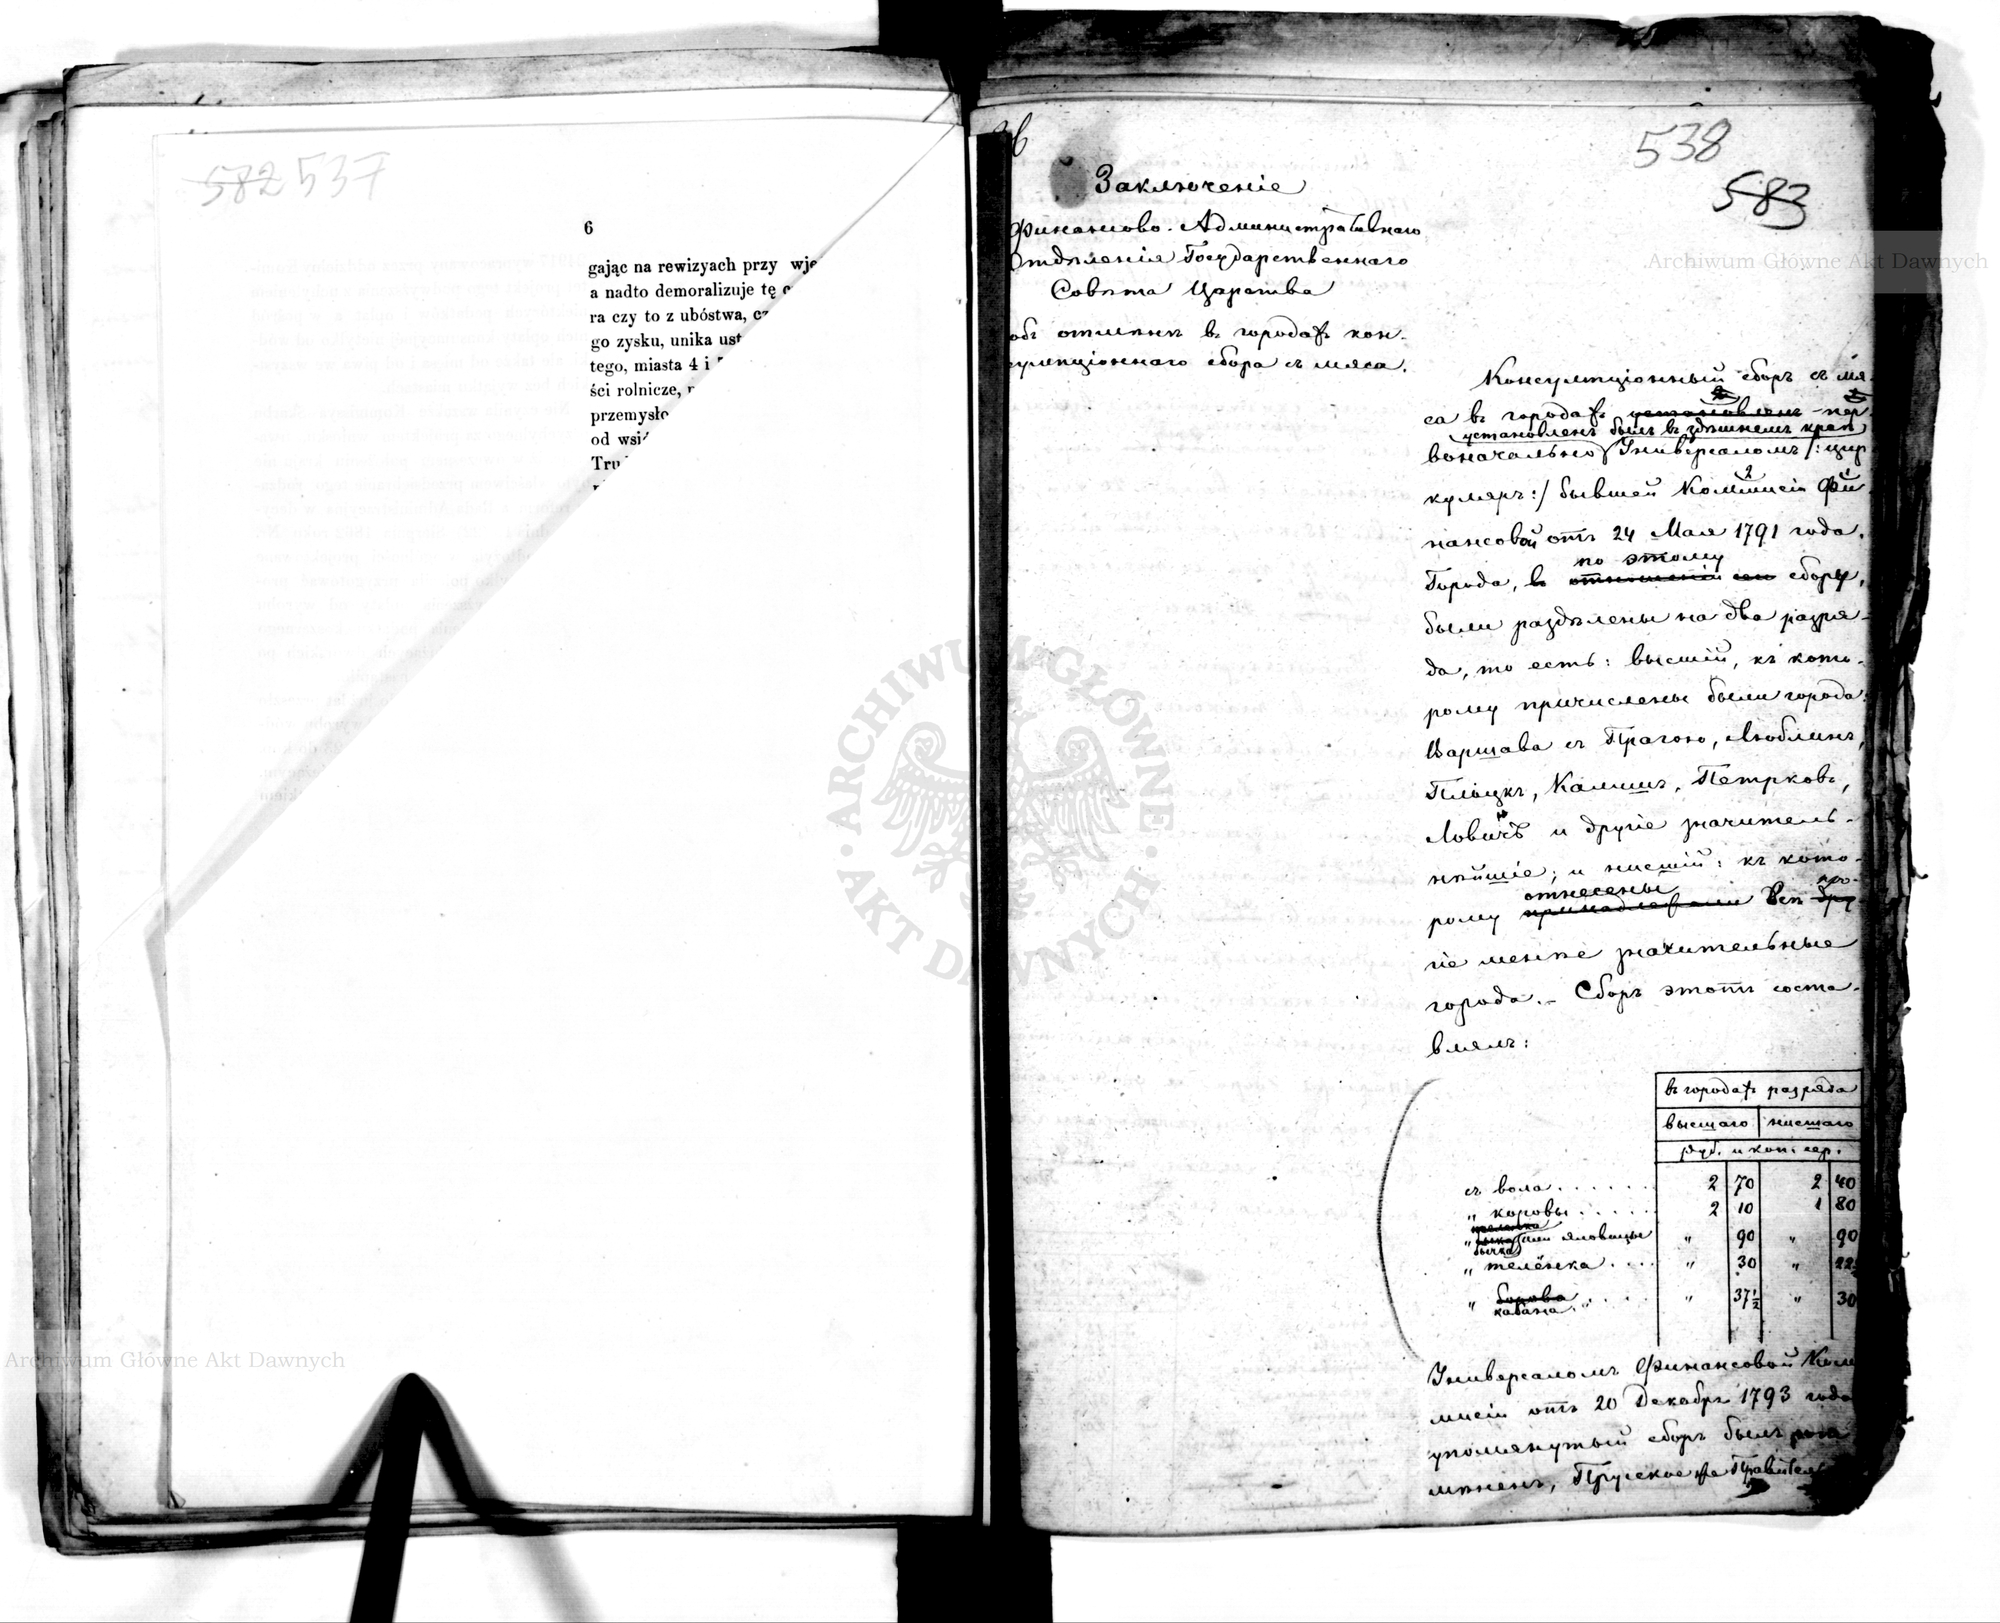 582 537
6
gając na rewizyach przy wje
a nadto demoralizuje tę
ra czy to z ubóstwa, cz
go zysku, unika ust
tego, miasta 4 i
ści rolnicze,
przemysło
od wsi
Tru
538
583
Заключеніе
Финансово-Административнаго
Отдѣленія Государственнаго
Совѣта Царства
объ отмѣнѣ въ городахъ кон-
сумпціоннаго сбора съ мяса.
Консумпціонный сборъ съ мя-
са въ городахъ установленъ пер-
установленъ былъ въ здѣшнемъ краѣ
воначально Универсаломъ /: цир
куляръ :/ бывшей Коммисіи Фи-
нансовой отъ 24 Мая 1791 года.
по этому
Города, въ отношеніи сего сбору,
были раздѣлены на два разря-
да, то есть: высшій, къ кото-
рому причислены были города:
Варшава съ Прагою, Люблинъ,
Плоцкъ, Калишъ, Петрковъ,
Ловичъ и другіе значитель-
нѣйшіе; и нисшій: къ кото-
отнесены про-
рому принадлежали Всѣ дру-
гіе менѣе значительные
города. – Сборъ этотъ соста-
влялъ:
въ городахъ разряда
высшаго нисшаго
руб. и коп. сер.
съ вола . . . . . . 2 70 2 40
„ коровы . . . . . 2 10 1 80
„ быка или яловицы „ 90 „ 90
бычка
„ телёнка . . . . „ 30 „ 22½
„ борова . . . . „ 37½ „ 30
кабана „
Универсаломъ Финансовой Ком
мисіи отъ 20 Декабря 1793 года
упомянутый сборъ былъ
Прусское же Правитель
Archiwum Główne Akt Dawnych
Archiwum Główne Akt Dawnych
ARCHIWUM GŁÓWNE AKT DAWNYCH